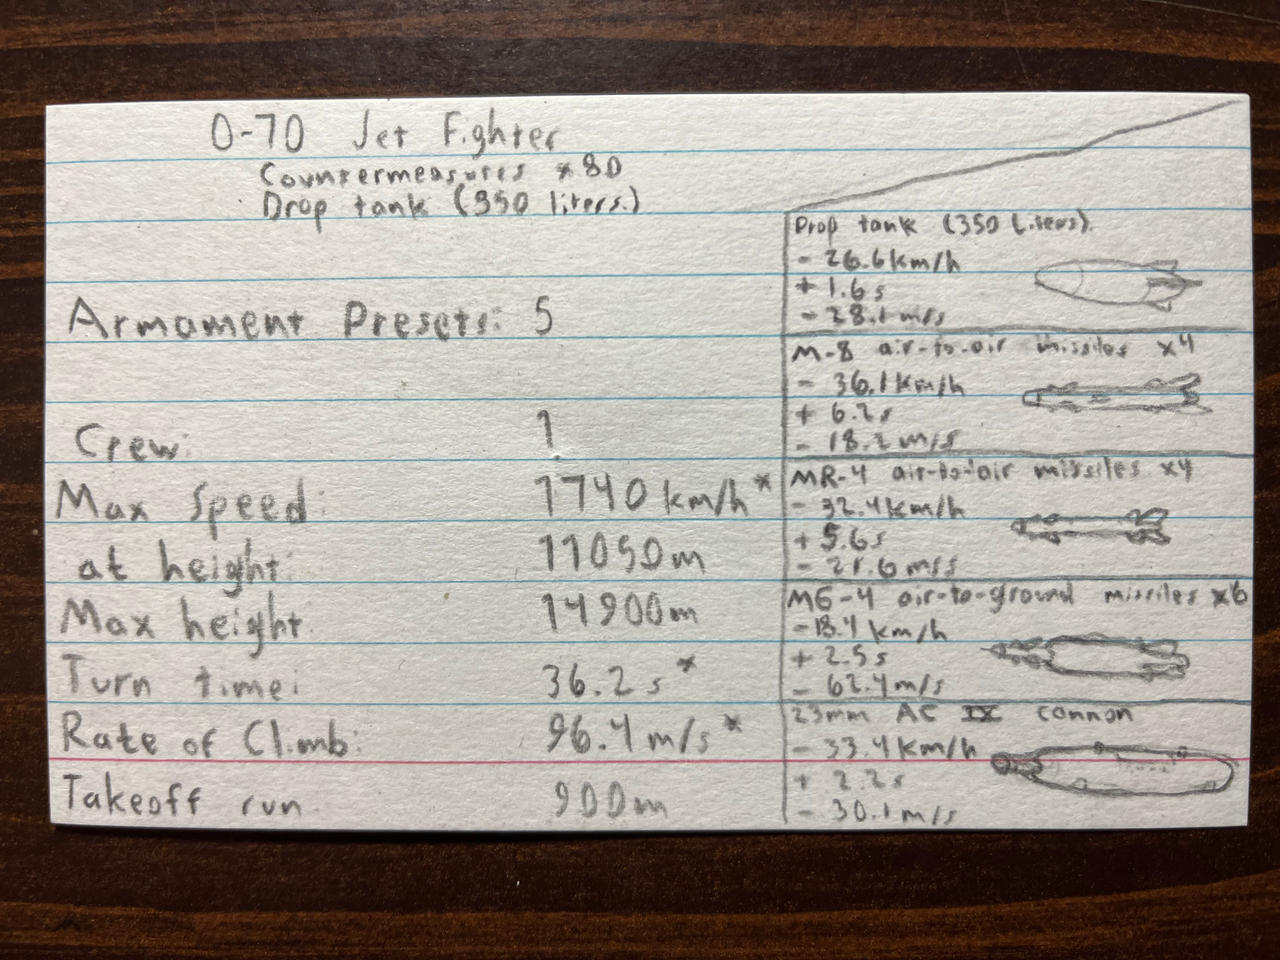 O-70 Jet Fighter
Countermeasures x80
Drop tank (350 liters.)
Armament Presets: 5
Crew: 1
Max Speed: 1740 km/h*
at height: 11050m
Max height: 14900m
Turn time: 36.2s*
Rate of Climb: 96.4 m/s*
Takeoff run 900m
Drop tank (350 Liters).
- 26.6km/h
+ 1.6s
- 28.1 m/s
M-8 air-to-air missiles x4
- 36.1km/h
+ 6.2s
- 18.2 m/s
MR-4 air-to-air missiles x4
- 32.4km/h
+ 5.6s
- 21.6 m/s
MG-4 air-to-ground missiles x6
- 18.4 km/h
+ 2.5s
- 62.4m/s
23mm AC IX cannon
- 33.4km/h
+ 2.2s
- 30.1m/s